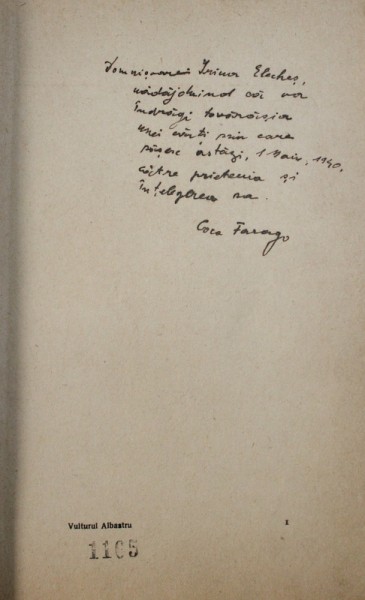 Domnișoarei Irina Eleches,
nădăjduind că va
îndrăgi tovărășia
unei cărți prin care
pășesc astăzi, 1 Mai, 1940,
către prietenia și
înțelegerea sa.
Coca Farago
Vulturul Albastru
1
1165